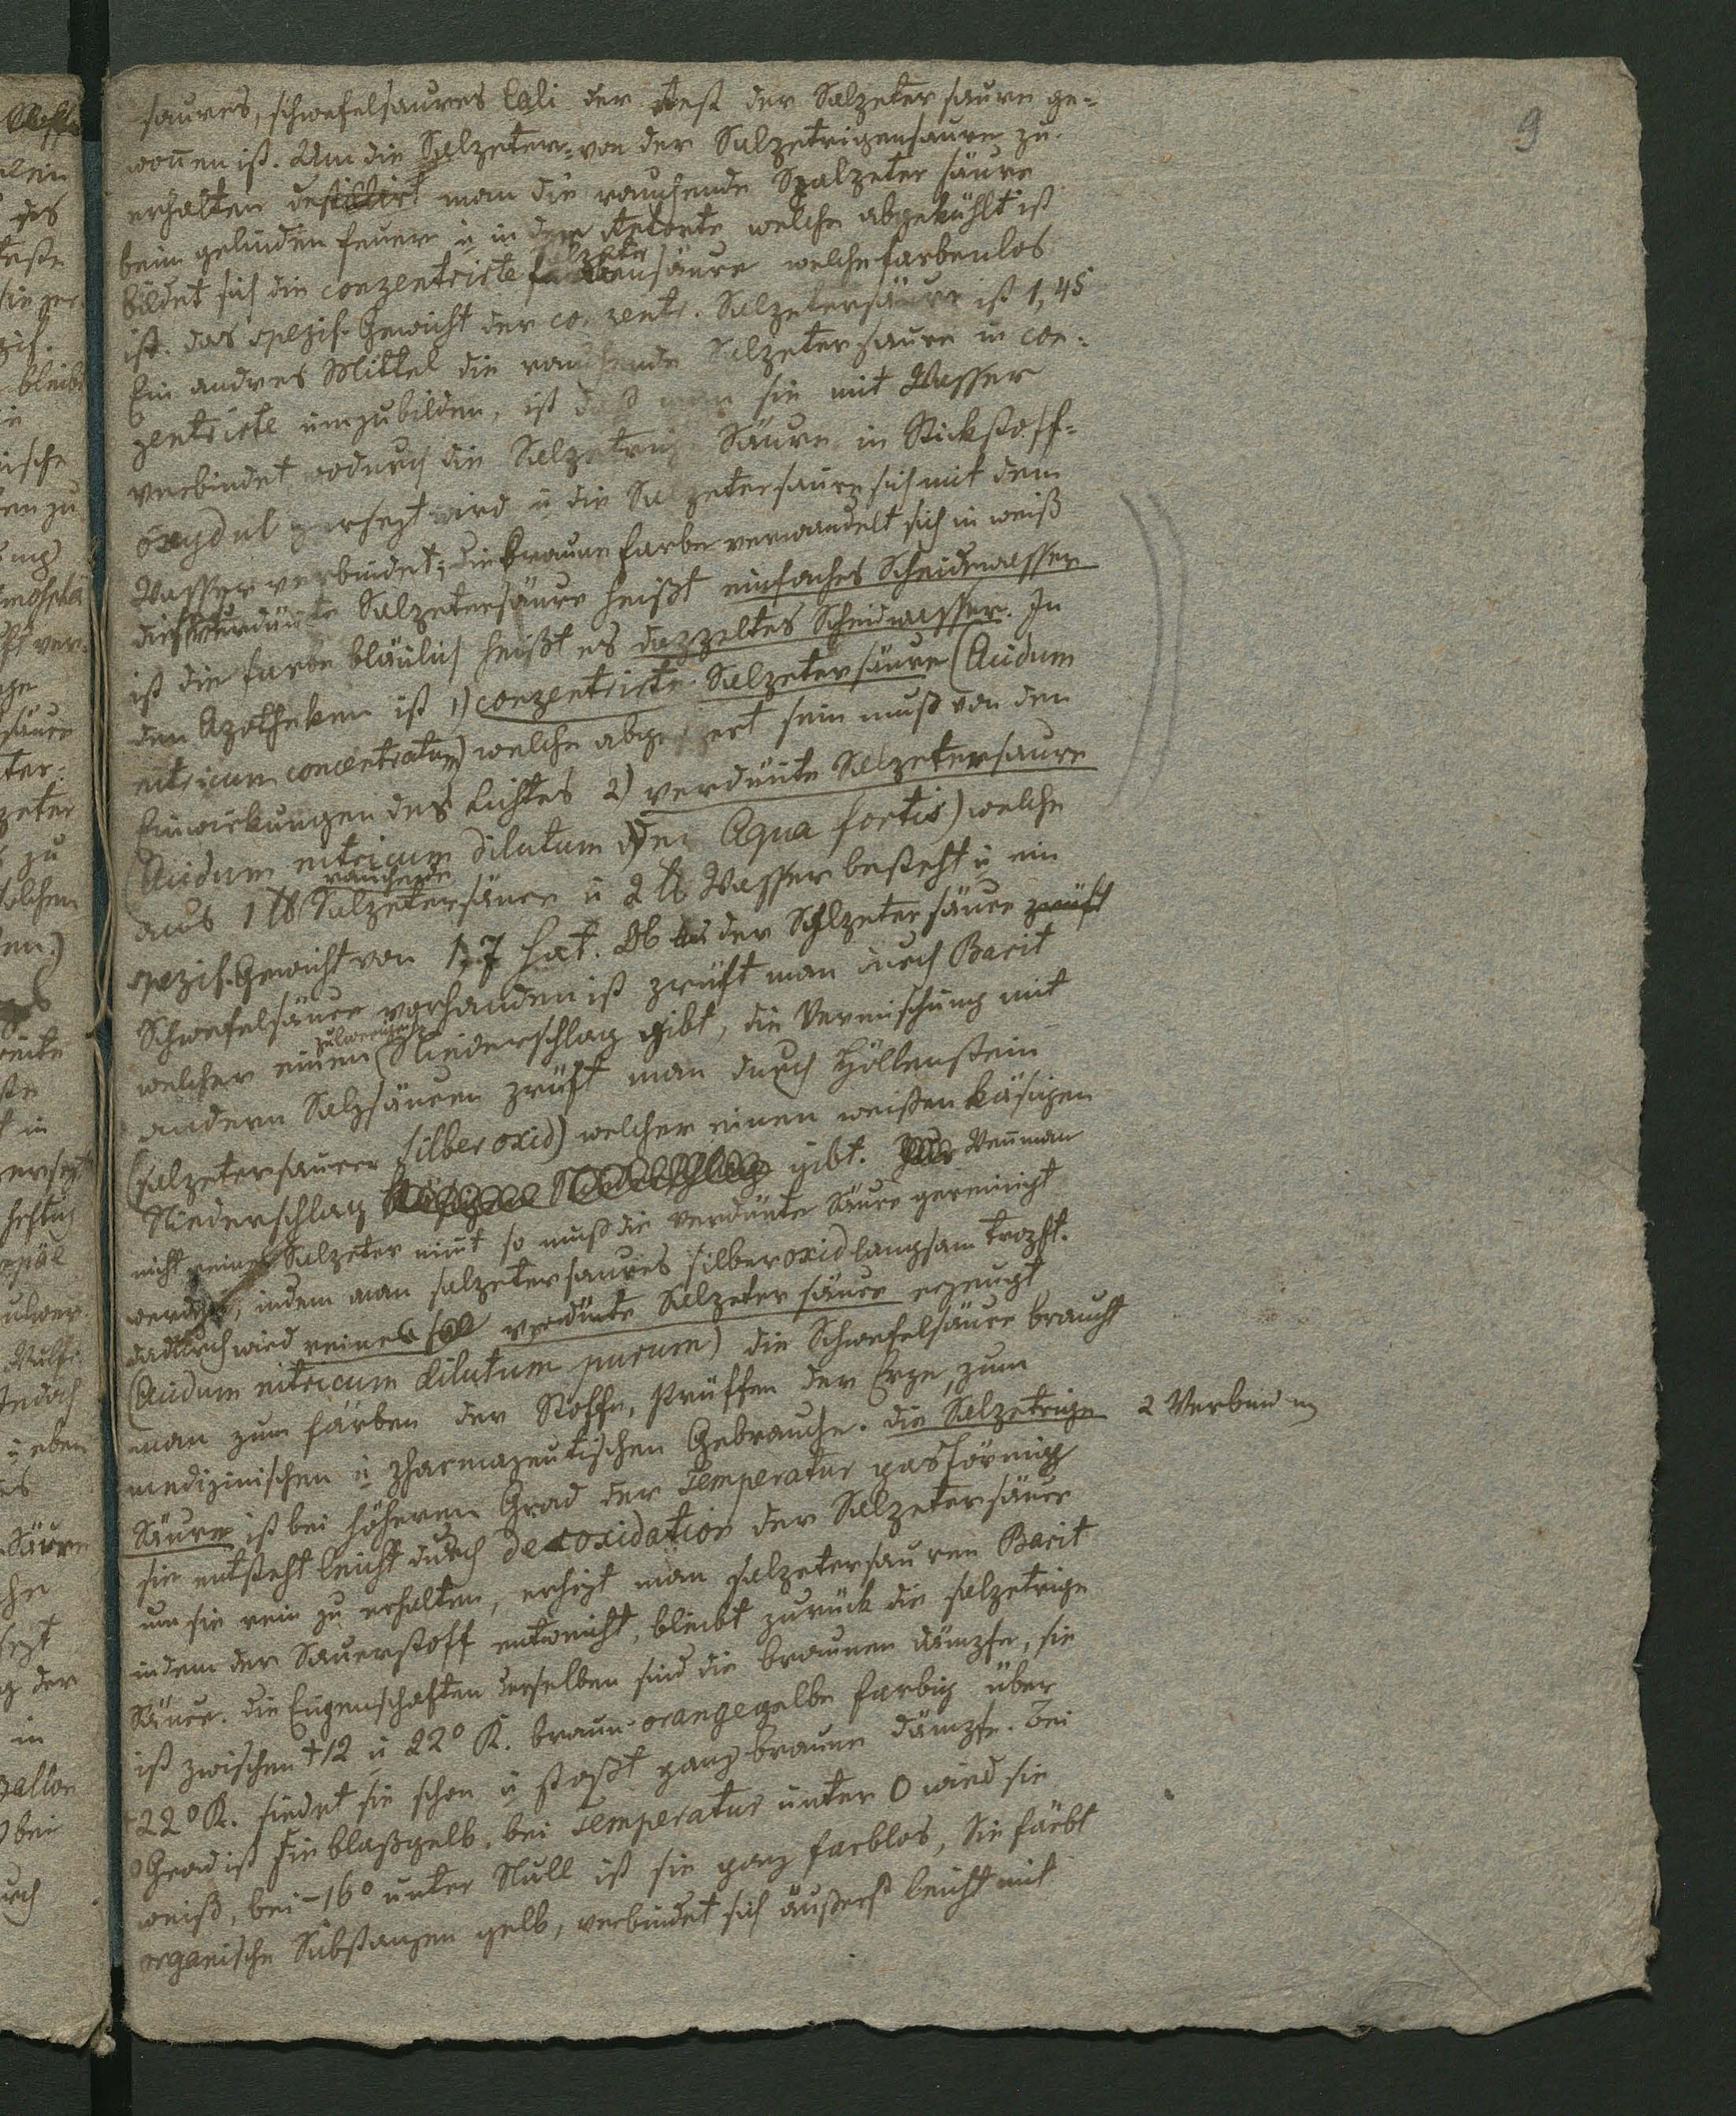 9
saures, schwefelsaures Cali der Rest der Salzetersaure ge-
wonnen ist. Um die Salzeter- von der Salzetrigensaure zu
erhalten destillirt man die rauchende Salzeter säure
beim gelinden feuer u in der Retorte welche abgekühlt ist
bildet sich die conzentrirte Salzetersäure welche farbenlos
ist. das spezif. Gewicht der conzentr. Salzetersäure ist 1,45
Ein andres Mittel die rauchende Salzetersaure in con-
zentrirte umzubilden, ist daß man sie mit Wasser
verbindet wodurch die Salzetrige Säure in Stickstoff-
oxydul zersezt wird u die Salzetersaure sich mit dem
Wasser verbindet; die braune farbe verwandelt sich in weiß
diese verdünte Salzetersäure heißt einfaches Scheidewasser
ist die farbe bläulich heißt es dozzeltes Scheidwasser. In
den Apotheken ist 1) conzentrirte Salzetersäure (Acidum
nitricum concentratum) welche abgesperrt sein muß von den
Einwirkungen des Lichtes 2) verdünte Salzetersaure
(Acidum nitricum dilutum oder Aqua fortis) welche
aus 1 ℔ rauchende Salzetersäure u 2 ℔ Wasser besteht u ein
spezif. Gewicht von 1,7 hat. Ob in der Salzetersäure zrüft
Schwefelsäure vorhanden ist zrüft man durch Barit
welcher einen pulverigen Niederschlag gibt, die Vermischung mit
andern Salzsäuren zrüft man durch Höllenstein
(salzetersaurer silberoxid) welcher einen weißen käsigen
Niederschlag käsigen Niederschlag gibt. Wenn man
nicht reines Salzeter nimt so muß die verdünte Säure gereinigt
werden, indem man salzetersaures silberoxid langsam trozft.
dadurch wird reine verdünte Salzeter säure erzeugt
(Acidum nitricum dilutum purum) die Schwefelsäure braucht
man zum färben der Stoffe, Prüffen der Erze, zum
medizinischen u zharmazeutischen Gebrauche. die Salzetrige
2 Verbindung
Säure ist bei höheren Grad der Temperatur gasförmig
sie entsteht leicht durch desoxidation der Salzetersäure
um sie rein zu erhalten, erhizt man salzetersauren Barit
indem der Sauerstoff entweicht, bleibt zurück die salzetrige
Säure. die Eigenschaften derselben sind die braunen dämzfe, sie
ist zwischen +12 u 22° R. braun orangegelbe farbig über
+22° R. siedet sie schon u stoßt ganz braune dämzfe. bei
0 Grad ist sie blaßgelb, bei Temperatur unter 0 wird sie
weiß, bei –16° unter Null ist sie ganz farblos, Sie färbt
organische Substanzen gelb, verbindet sich äußerst leicht mit